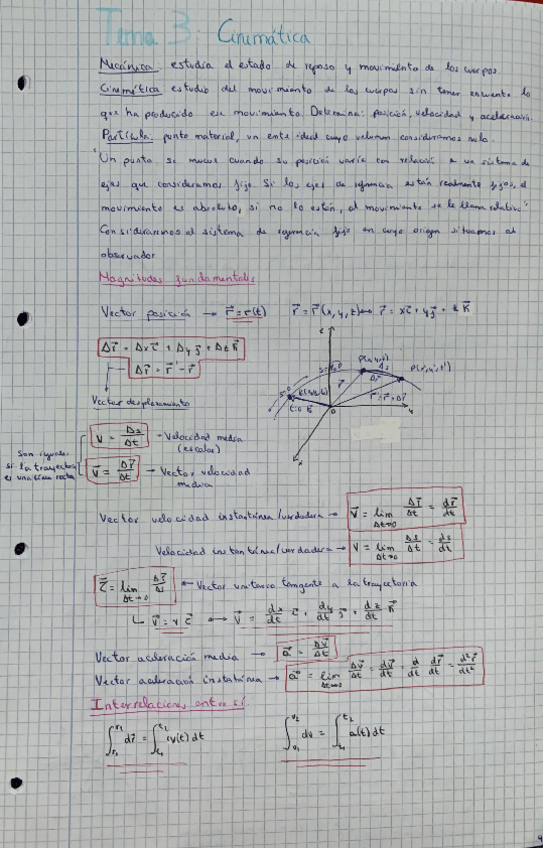 Tema 3: Cinemática
Mecánica: estudia el estado de reposo y movimiento de los cuerpos.
Cinemática: estudio del movimiento de los cuerpos sin tener encuenta lo
que ha producido ese movimiento. Determina: posición, velocidad y aceleración.
Partícula: punto material, un ente ideal cuyo volumen consideramos nulo.
"Un punto se mueve cuando su posición varía con relación a un sistema de
ejes que consideramos fijo. Si los ejes de referencia están realmente fijos, el
movimiento es absoluto, si no lo están, al movimiento se le llama relativo"
Consideraremos el sistema de referencia fijo en cuyo origen situamos al
observador
Magnitudes fundamentales
Vector posición → r⃗ = r⃗(t) r⃗ = r⃗(x,y,z) ↔ r⃗ = xi⃗ + yj⃗ + zk⃗
Δr⃗ = Δxi⃗ + Δyj⃗ + Δzk⃗
Δr⃗ = r⃗' - r⃗
Vector desplazamiento
P(x,y,z)
P(x',y',z')
Δs
Δr⃗
r⃗
r⃗' = r⃗ + Δr⃗
t=0
0
y
x
v = Δs/Δt → Velocidad media
(escalar)
Son iguales
si la trayectoria
es una línea recta
v⃗ = Δr⃗/Δt → Vector velocidad
media
Vector velocidad instantánea/verdadera → v⃗ = lim Δt→0 Δr⃗/Δt = dr⃗/dt
Velocidad instantánea/verdadera → v = lim Δt→0 Δs/Δt = ds/dt
τ⃗ = lim Δt→0 Δr⃗/Δs ← Vector unitario tangente a la trayectoria
↳ v⃗ = v τ⃗ ↔ v⃗ = dx/dt i⃗ + dy/dt j⃗ + dz/dt k⃗
Vector aceleración media → a⃗ = Δv⃗/Δt
Vector aceleración instantánea → a⃗ = lim Δt→0 Δv⃗/Δt = dv⃗/dt = d/dt dr⃗/dt = d²r⃗/dt²
Interrelaciones entre sí
∫r₁r₂ dr⃗ = ∫t₁t₂ v(t)dt ∫v₁v₂ dv = ∫t₁t₂ a(t)dt